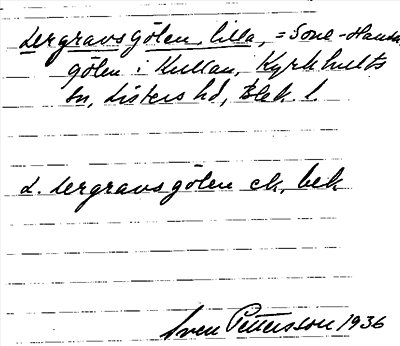 Lergravsgölen, lilla, = Sone-Hans-
gölen i Kullan, Kyrkhults
sn, Listers hd, Blek. l.
L. Lergravsgölen ek, bek
Sven Pettersson 1936